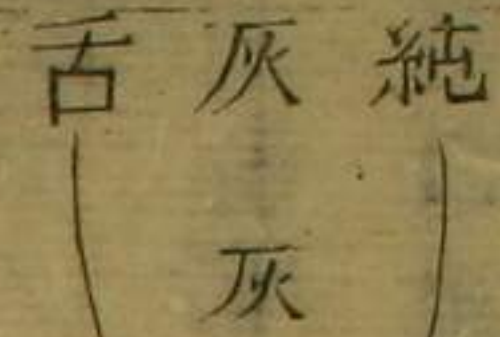 純灰舌
灰